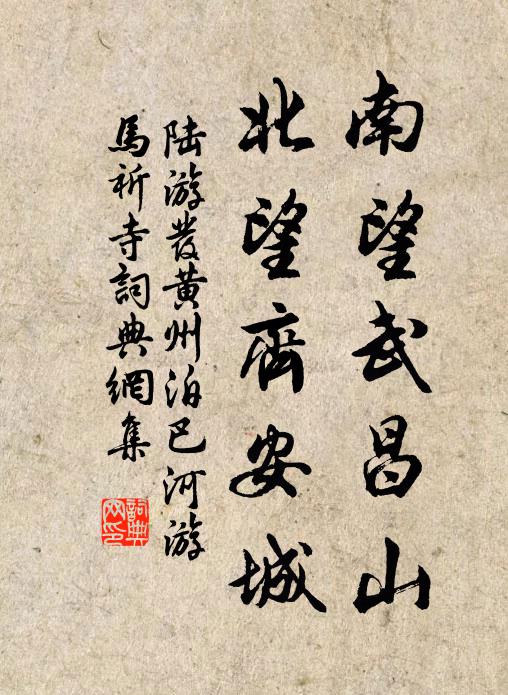 南望武昌山
北望齊安城
陆游發黄州泊巴河游
馬祈寺詞典網集
詞典网印